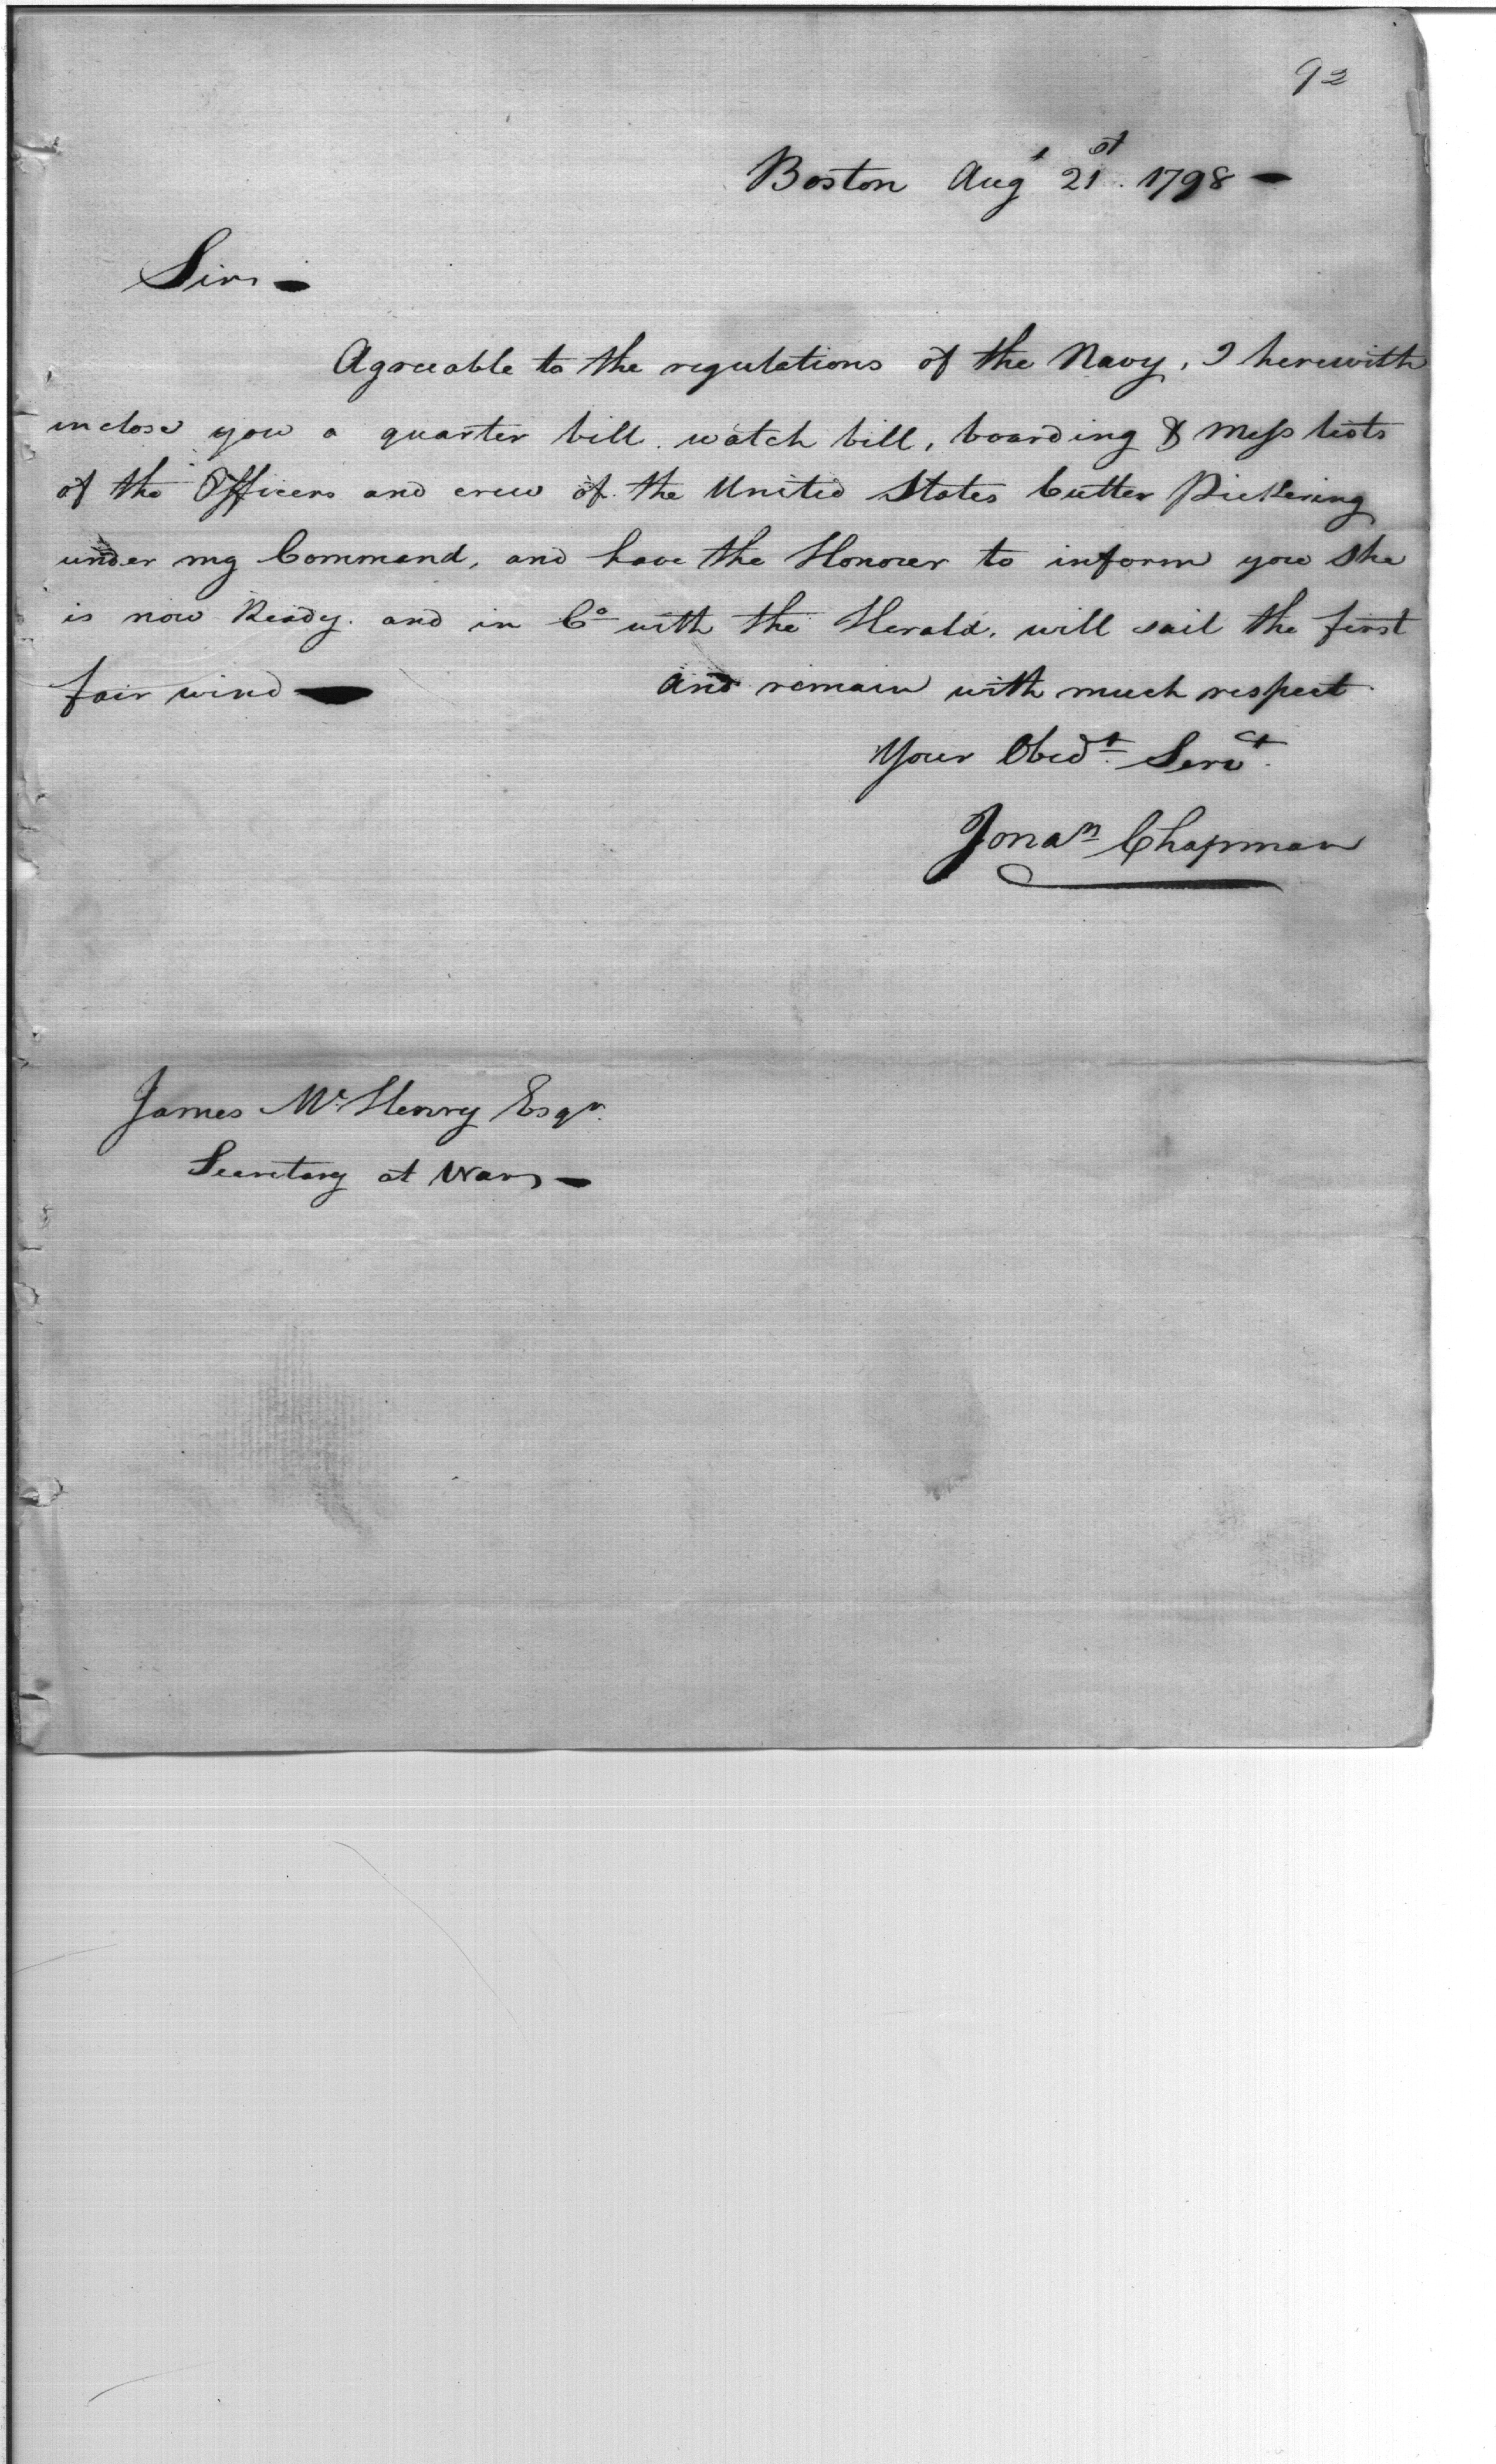 92
Boston Augt 21st. 1798 -
Sir -
Agreeable to the regulations of the Navy, I herewith
inclose you a quarter bill. watch bill, boarding & Mess lists
of the Officers and crew of the United States Cutter Pickering
under my Command, and have the Honour to inform you She
is now Ready. and in Co with the Herald. will sail the first
fair wind — and remain with much respect
Your Obedt. Servt.
Jonan Chapman
James McHenry Esqr.
Secretary at War -